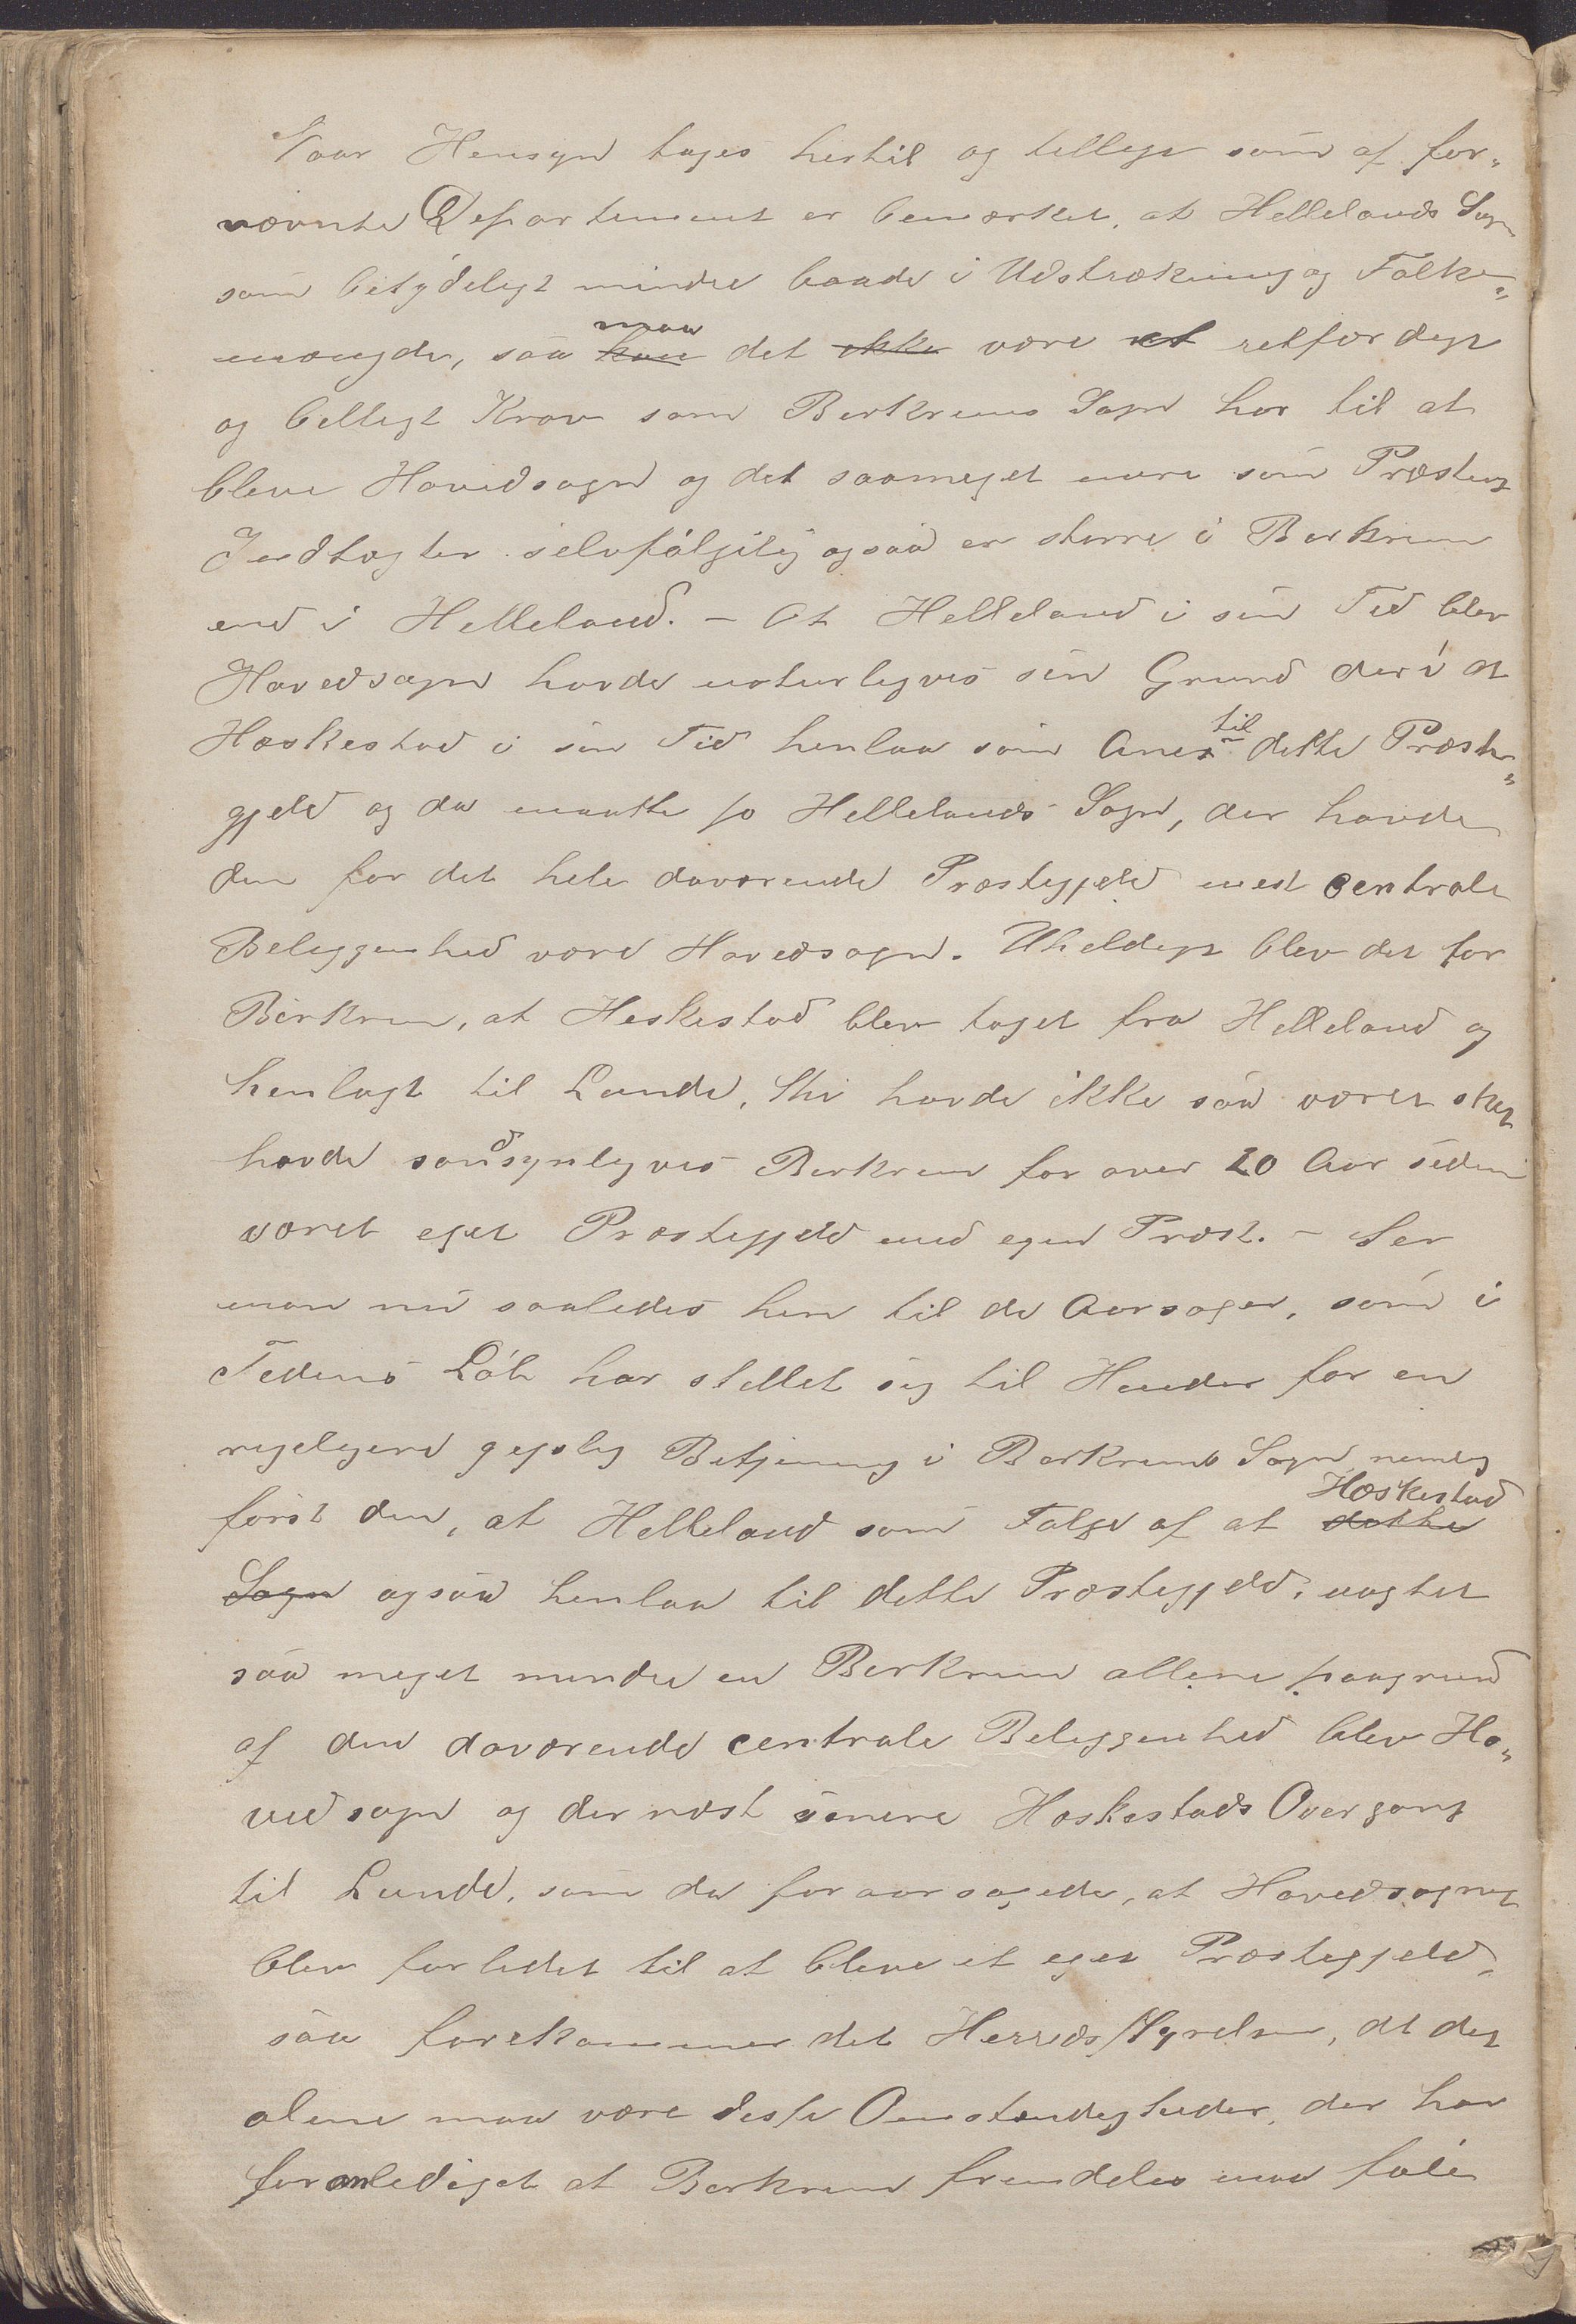 Naar Hensyn tages hertil og tillige som af for„
nævnte Departement er bemærket, at Hellelands Sogn
som betydeligt mindre baade i Udstrækning og Folke„
mængde, saa kan maa det ikke være et retfærdigt
og billigt Krav som Birkrems Sogn har til at
blive Hovedsogn og det saameget mere som Præstens
Indtægter selvfølgelig ogsaa er større i Birkrem
end i Helleland. – At Helleland i sin Tid blev
Hovedsogn havde naturligvis sin Grund deri at
Hæskestad i sin Tid henlaa som Anex til dette Præste„
gjeld og da maatte jo Hellelands Sogn, der havde
den for det hele daværende Præstegjeld mest centrale
Beliggenhed være Hovedsogn. Uheldigt blev det for
Birkrem, at Heskestad blev taget fra Helleland og
henlagt til Lunde, thi havde ikke saa været skeet
havde sandsynligvis Birkrem for over 20 Aar siden
været eget Præstegjeld med egen Præst. – Ser
man nu saaledes hen til de Aarsager, som i
Tidens Løb har stillet sig til Hinder for en
rigeligere geistlig Betjening i Birkrems Sogn, nemlig
først den, at Helleland som Følge af at dette Hæskestad
Sogn ogsaa henlaa til dette Præstegjeld, uagtet
saa meget mindre en Birkrem allene paagrund
af den daværende centrale Beliggenhed blev Ho„
vedsogn og dernæst senere Hæskestads Overgang
til Lunde, som da foraarsagede, at Hovedsognet
blev forledet til at blive et eget Præstegjeld,
saa forekommer det Herredsstyrelsen, at det
alene maa være disse Omstændigheder, der har
foranlediget at Birkrem fremdeles maa føle